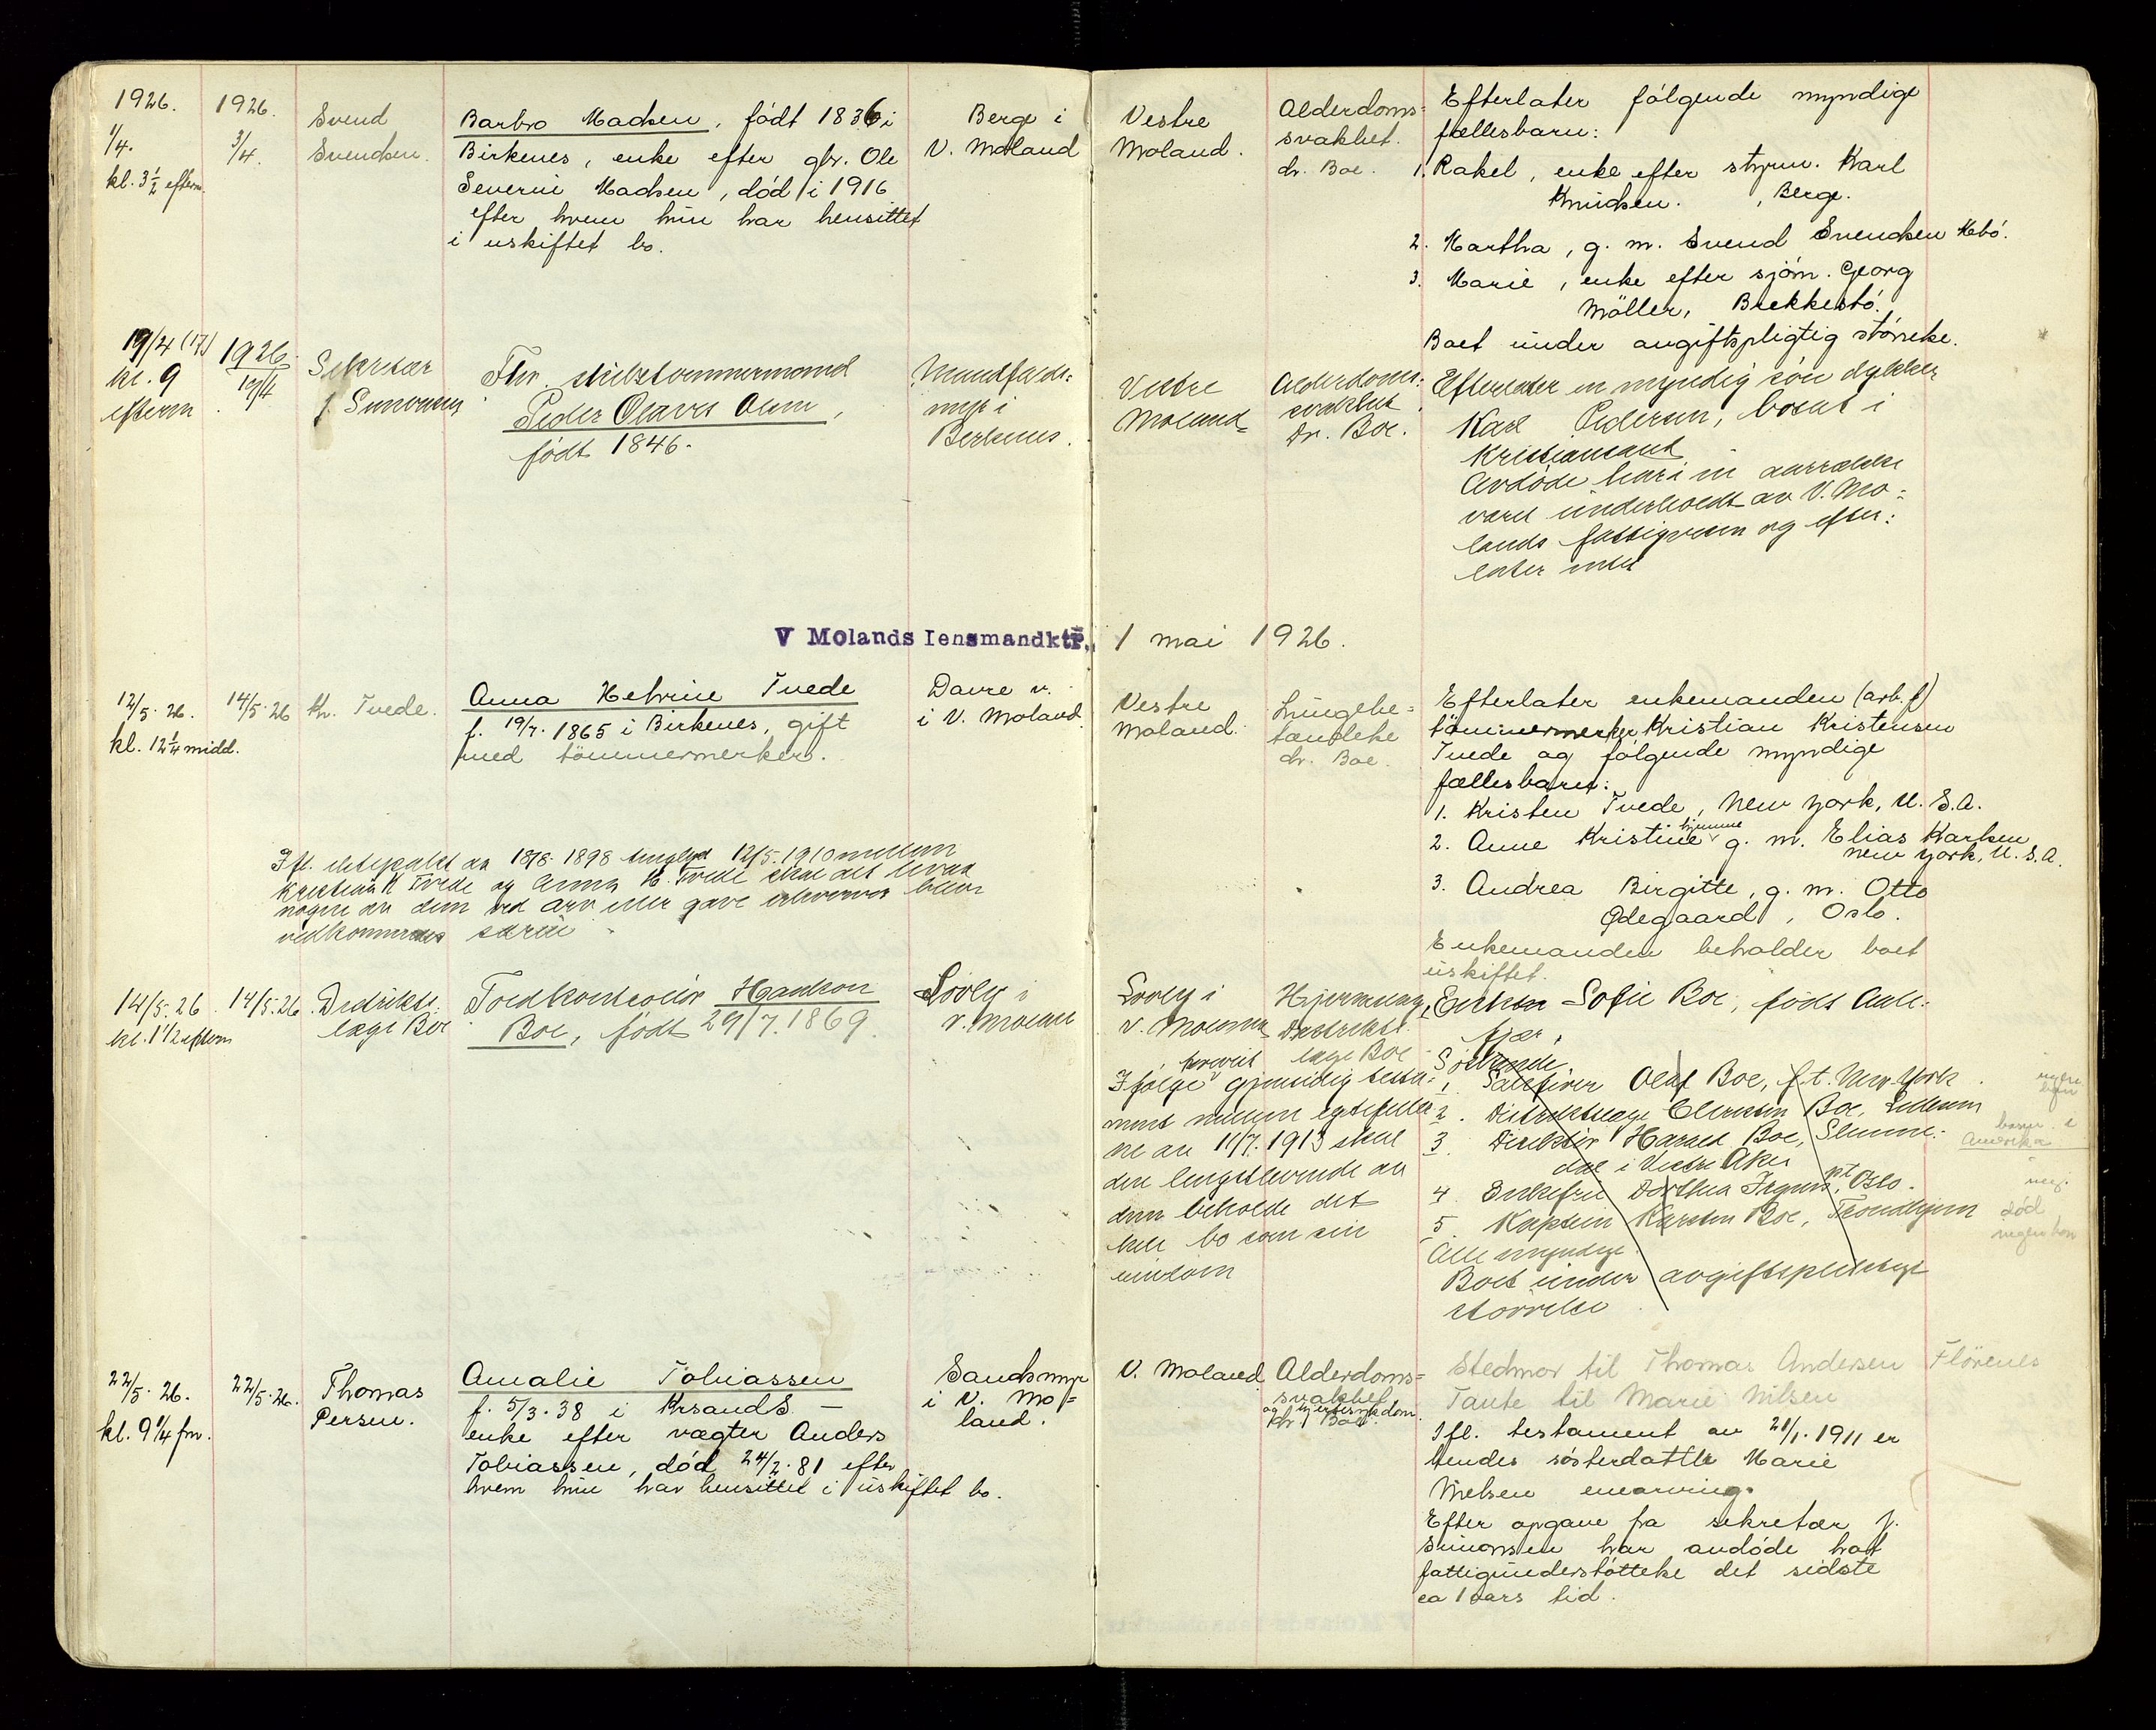 1926.
1/4.
kl. 3 1/2 efterm.
1926.
3/4.
Svend
Svendsen.
Barbro Madsen, født 1836 i
Birkenes, enke efter gbr. Ole
Severin Madsen, død i 1916
efter hvem hun har hensittet
i uskiftet bo.
Berge i
V. Moland
Vestre
Moland.
Alderdoms-
svakhet.
dr. Boe.
Efterlater følgende myndige
fællesbarn:
1. Rakel, enke efter styrm. Karl
Knudsen. , Berge.
2. Martha, g. m. Svend Svendsen
3. Marie, enke efter sjøm. Georg
Møller, Brekkestø.
Boet under avgiftspligtig størrelse.
19/4 (17)
kl. 9
efterm
1926.
19/4
Sekretær
J. Simonsen
Fhv. skibstømmermand
Peder Olaves Olsen,
født 1846.
myr i
Birkenes.
Vestre
Moland
Alderdoms-
svakhet
Dr. Boe.
Efterlater en myndig søn dykker
Karl Pedersen, bosat i
Kristiansand
Avdøde har i en aarrække
været underholdt av V. Mo-
lands fattigvesen og efter-
later intet
V Molands lensmandktr.,
1 mai 1926.
12/5. 26.
kl. 12 1/4 midd.
14/5. 26
Kr. Tvede.
Anna Helvine Tvede
f. 19/7. 1865 i Birkenes, gift
med tømmermerker.
Davre v.
i V. Moland
Vestre
Moland.
Lungebe-
tændelse
dr. Boe.
Efterlater enkemanden (arb. f)
tømmermerker Kristian Kristensen
Tvede og følgende myndige
fællesbarn:
1. Kristen Tvede, New York, U. S. A.
2. Anne Kristine hjemme g. m. Elias Karlsen
New York, U. S. A.
3. Andrea Birgitte, g. m. Otto
Ødegaard, Oslo.
Enkemanden beholder boet
uskiftet.
Ifl. ektepakt av 18/8. 1898 tinglyst 12/5. 1910 mellem
Kristian K Tvede og Anna H. Tvede skal det hvad
nogen av dem ved arv eller gave erhverver blive
vedkommendes særeie
14/5. 26
kl. 1 1/2 efterm
14/5. 26.
Distrikts-
læge Boe
Toldkontrollør Haakon
Boe, født 29/7. 1869.
i
V. Moland
i
V. Moland
Distrikts-
læge Boe
Ifølge gjensidig testa-
ment mellem egtefæller
ne av 11/7. 1913 skal
den lengstlevende av
dem beholde det
hele bo som sin
eiendom
Enken Sofie Boe, født Aale-
kjær,
Søskende
1. Olaf Boe, f. t. New York
2. Distriktslæge Boe,
3. Direktør Harald Boe, Slemme-
dal i Vestre Aker
4. Enkefru Dorthea pt. Oslo.
5. Kaptein Karsten Boe, Trondhjem
Alle myndige.
Boet under avgiftspligtig
størrelse
ingen
barn
barn i
Amerika
død
ingen barn
22/5. 26.
kl. 9 1/4 fm.
22/5. 26.
Thomas
Persen.
Amalie Tobiassen
f. 5/3. 38 i Krsand S. –
enke efter vægter Anders
Tobiassen, død 24/2. 81 efter
hvem hun har hensittet i uskiftet bo.
Sandsmyr
i V. Mo-
land.
V. Moland
Alderdoms-
svakhet
og hjertesykdom.
dr. Boe.
Stedmor til Thomas Andersen Flörenes
Tante til Marie Nilsen
Ifl. testament av 21/1. 1911 er
hendes søsterdatter Marie
Nielsen enearving.
Efter opgave fra sekretær J.
Simonsen har avdøde hat
fattigunderstøttelse det sidste
ca 1 aars tid.